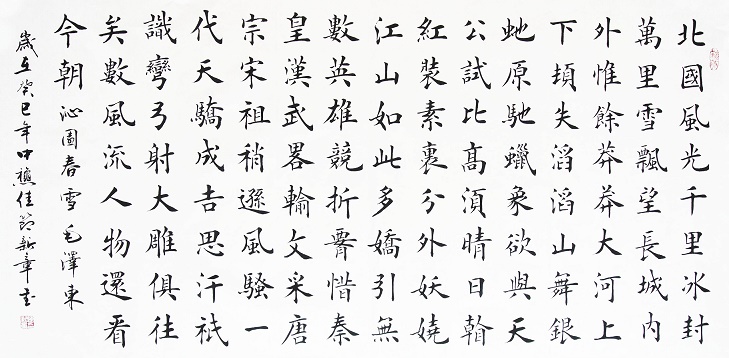 北國風光千里冰封
萬里雪飄望長城內
外惟餘莽莽大河上
下頓失滔滔山舞銀
虵原馳蠟象欲與天
公試比高須晴日看
紅裝素裹分外妖嬈
江山如此多嬌引無
數英雄競折腰惜秦
皇漢武畧輸文采唐
宗宋祖稍遜風騷一
代天驕成吉思汗祇
識彎弓射大雕俱往
矣數風流人物還看
今朝 沁園春雪毛澤東
歲在癸巳年中穐佳節新章書